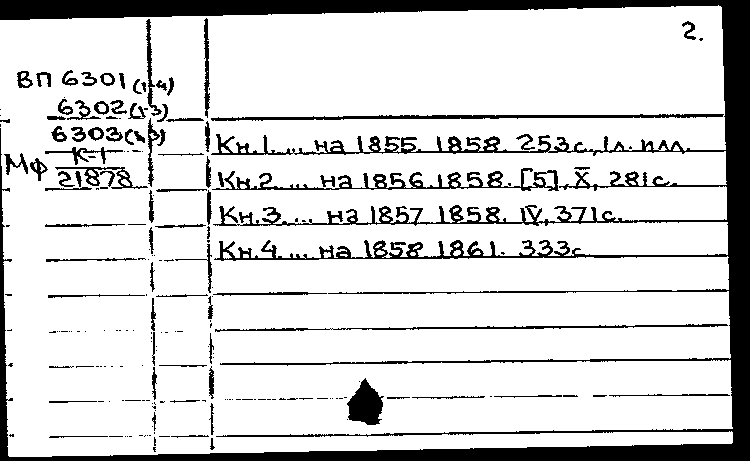 2.
ВП 6301 (1-4)
6302 (1-3)
6303 (1-3)
МФ К-1
21878
Кн.1. ... на 1855. 1858. 253с., 1л. илл.
Кн.2. ... на 1856. 1858. [5], X, 281с.
Кн.3. ... на 1857 1858. IV, 371с.
Кн.4. ... на 1858 1861. 333с